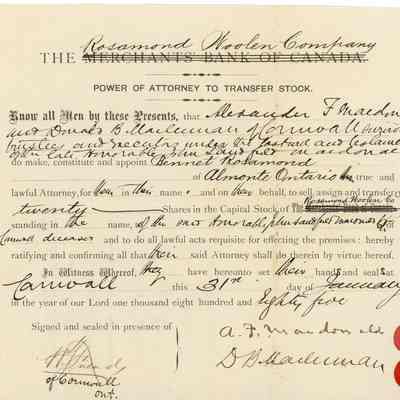 Rosamond Woolen Company
THE MERCHANTS' BANK OF CANADA.
POWER OF ATTORNEY TO TRANSFER STOCK.
Know all Men by these Presents, that Alexander F
and Donald B. Maclennan of Cornwall
trustees and executors under the last will and
of the late Honorable John Sandfield
do make, constitute and appoint Bennet Rosamond
of Almonte Ontario true and
lawful Attorney, for them in their name and on their behalf, to sell, assign and transfer
twenty Shares in the Capital Stock of Rosamond Woolen Co
standing in the name of the said Honorable John Sandfield
deceased and to do all lawful acts requisite for effecting the premises: hereby
ratifying and confirming all that their said Attorney shall do therein by virtue hereof.
In Witness Whereof, they have hereunto set their hands and seals at
Cornwall this 31st day of January
in the year of our Lord one thousand eight hundred and Eighty five
Signed and sealed in presence of
A. F. Macdonald
D B Maclennan
of Cornwall
Ont.